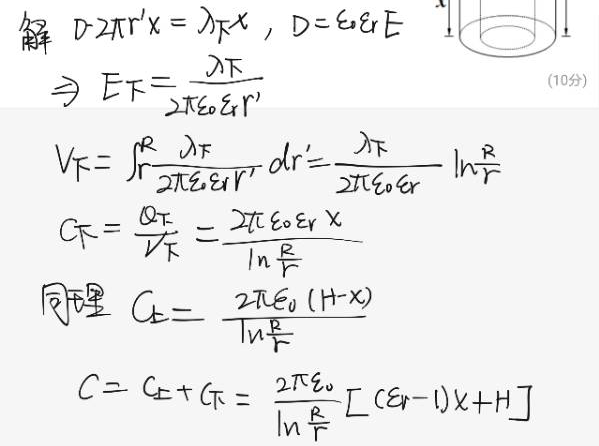 解 D·2πr'x = λ下x , D = ε₀εrE
x
⇒ E下 = λ下/2πε₀εrr'
(10分)
V下 = ∫rR λ下/2πε₀εrr' dr' = λ下/2πε₀εr ln R/r
C下 = Q下/V下 = 2πε₀εrx/ln R/r
同理 C上 = 2πε₀(H-x)/ln R/r
C = C上 + C下 = 2πε₀/ln R/r [(εr-1)x+H]